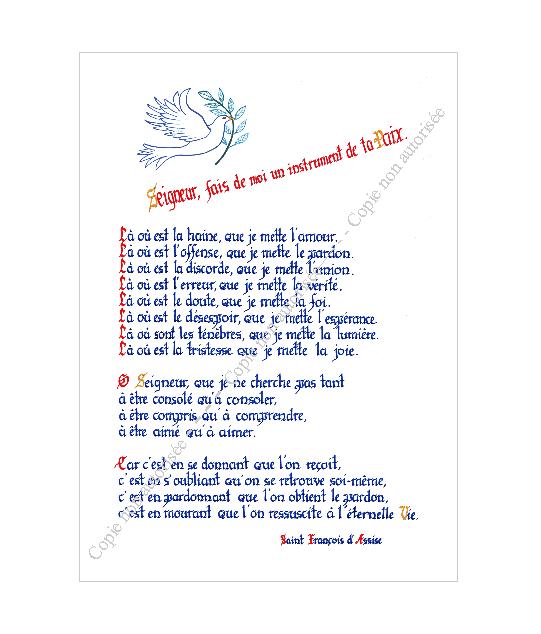 Seigneur, fais de moi un instrument de ta Paix.
Là où est la haine, que je mette l'amour.
Là où est l'offense, que je mette le pardon.
Là où est la discorde, que je mette l'union.
Là où est l'erreur, que je mette la vérité.
Là où est le doute, que je mette la foi.
Là où est le désespoir, que je mette l'espérance.
Là où sont les ténèbres, que je mette la lumière.
Là où est la tristesse que je mette la joie.
O Seigneur, que je ne cherche pas tant
à être consolé qu'à consoler,
à être compris qu'à comprendre,
à être aimé qu'à aimer.
Car c'est en se donnant que l'on reçoit,
c'est en s'oubliant qu'on se retrouve soi-même,
c'est en pardonnant que l'on obtient le pardon,
c'est en mourant que l'on ressuscite à l'éternelle Vie.
Saint François d'Assise
Copie non autorisée - - - Copie non autorisée - - - Copie non autorisée